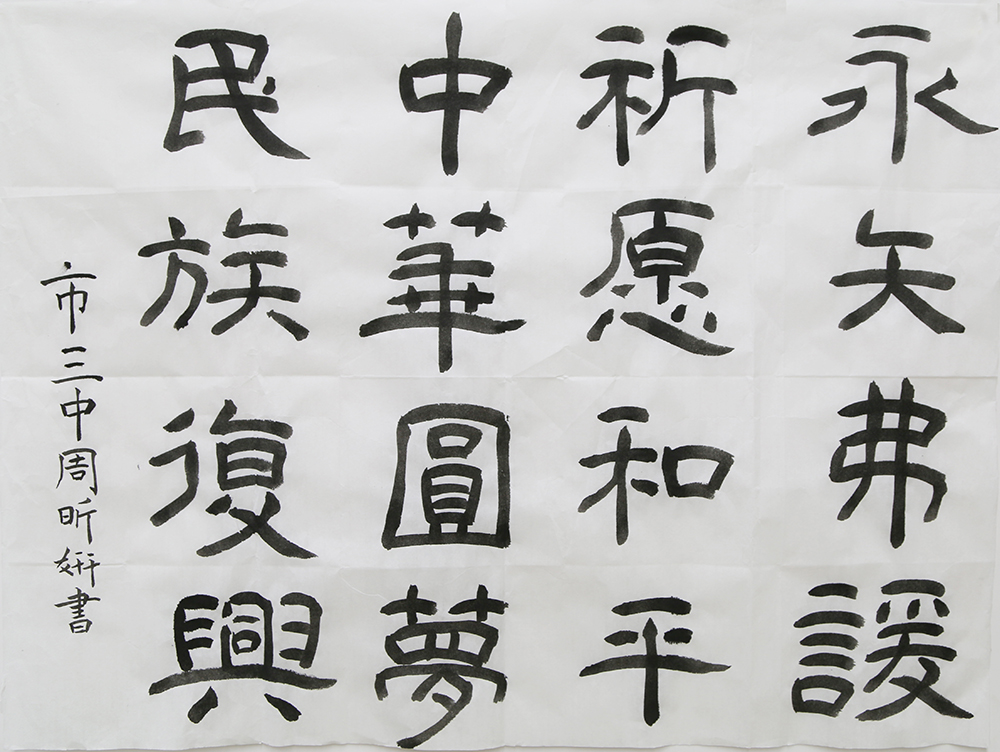 永矢弗諼
祈愿和平
中華圓夢
民族復興
市三中周昕妍書